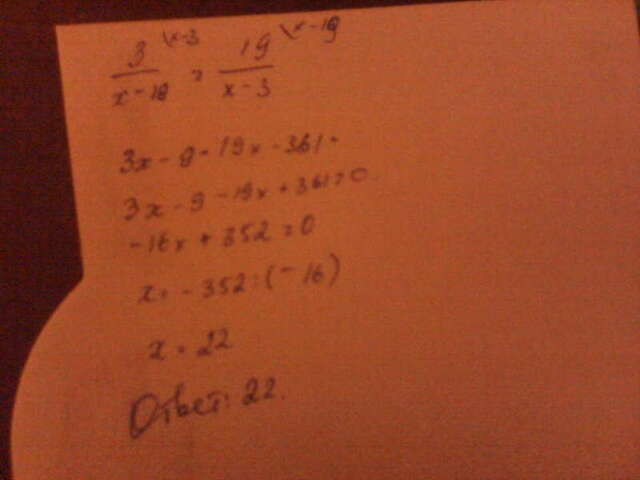 3 \x-3 = 19 \x-19
x-19 x-3
3x - 9 = 19x - 361
3x - 9 - 19x + 361 = 0
-16x + 352 = 0
x = -352 : (-16)
x = 22
Ответ: 22.